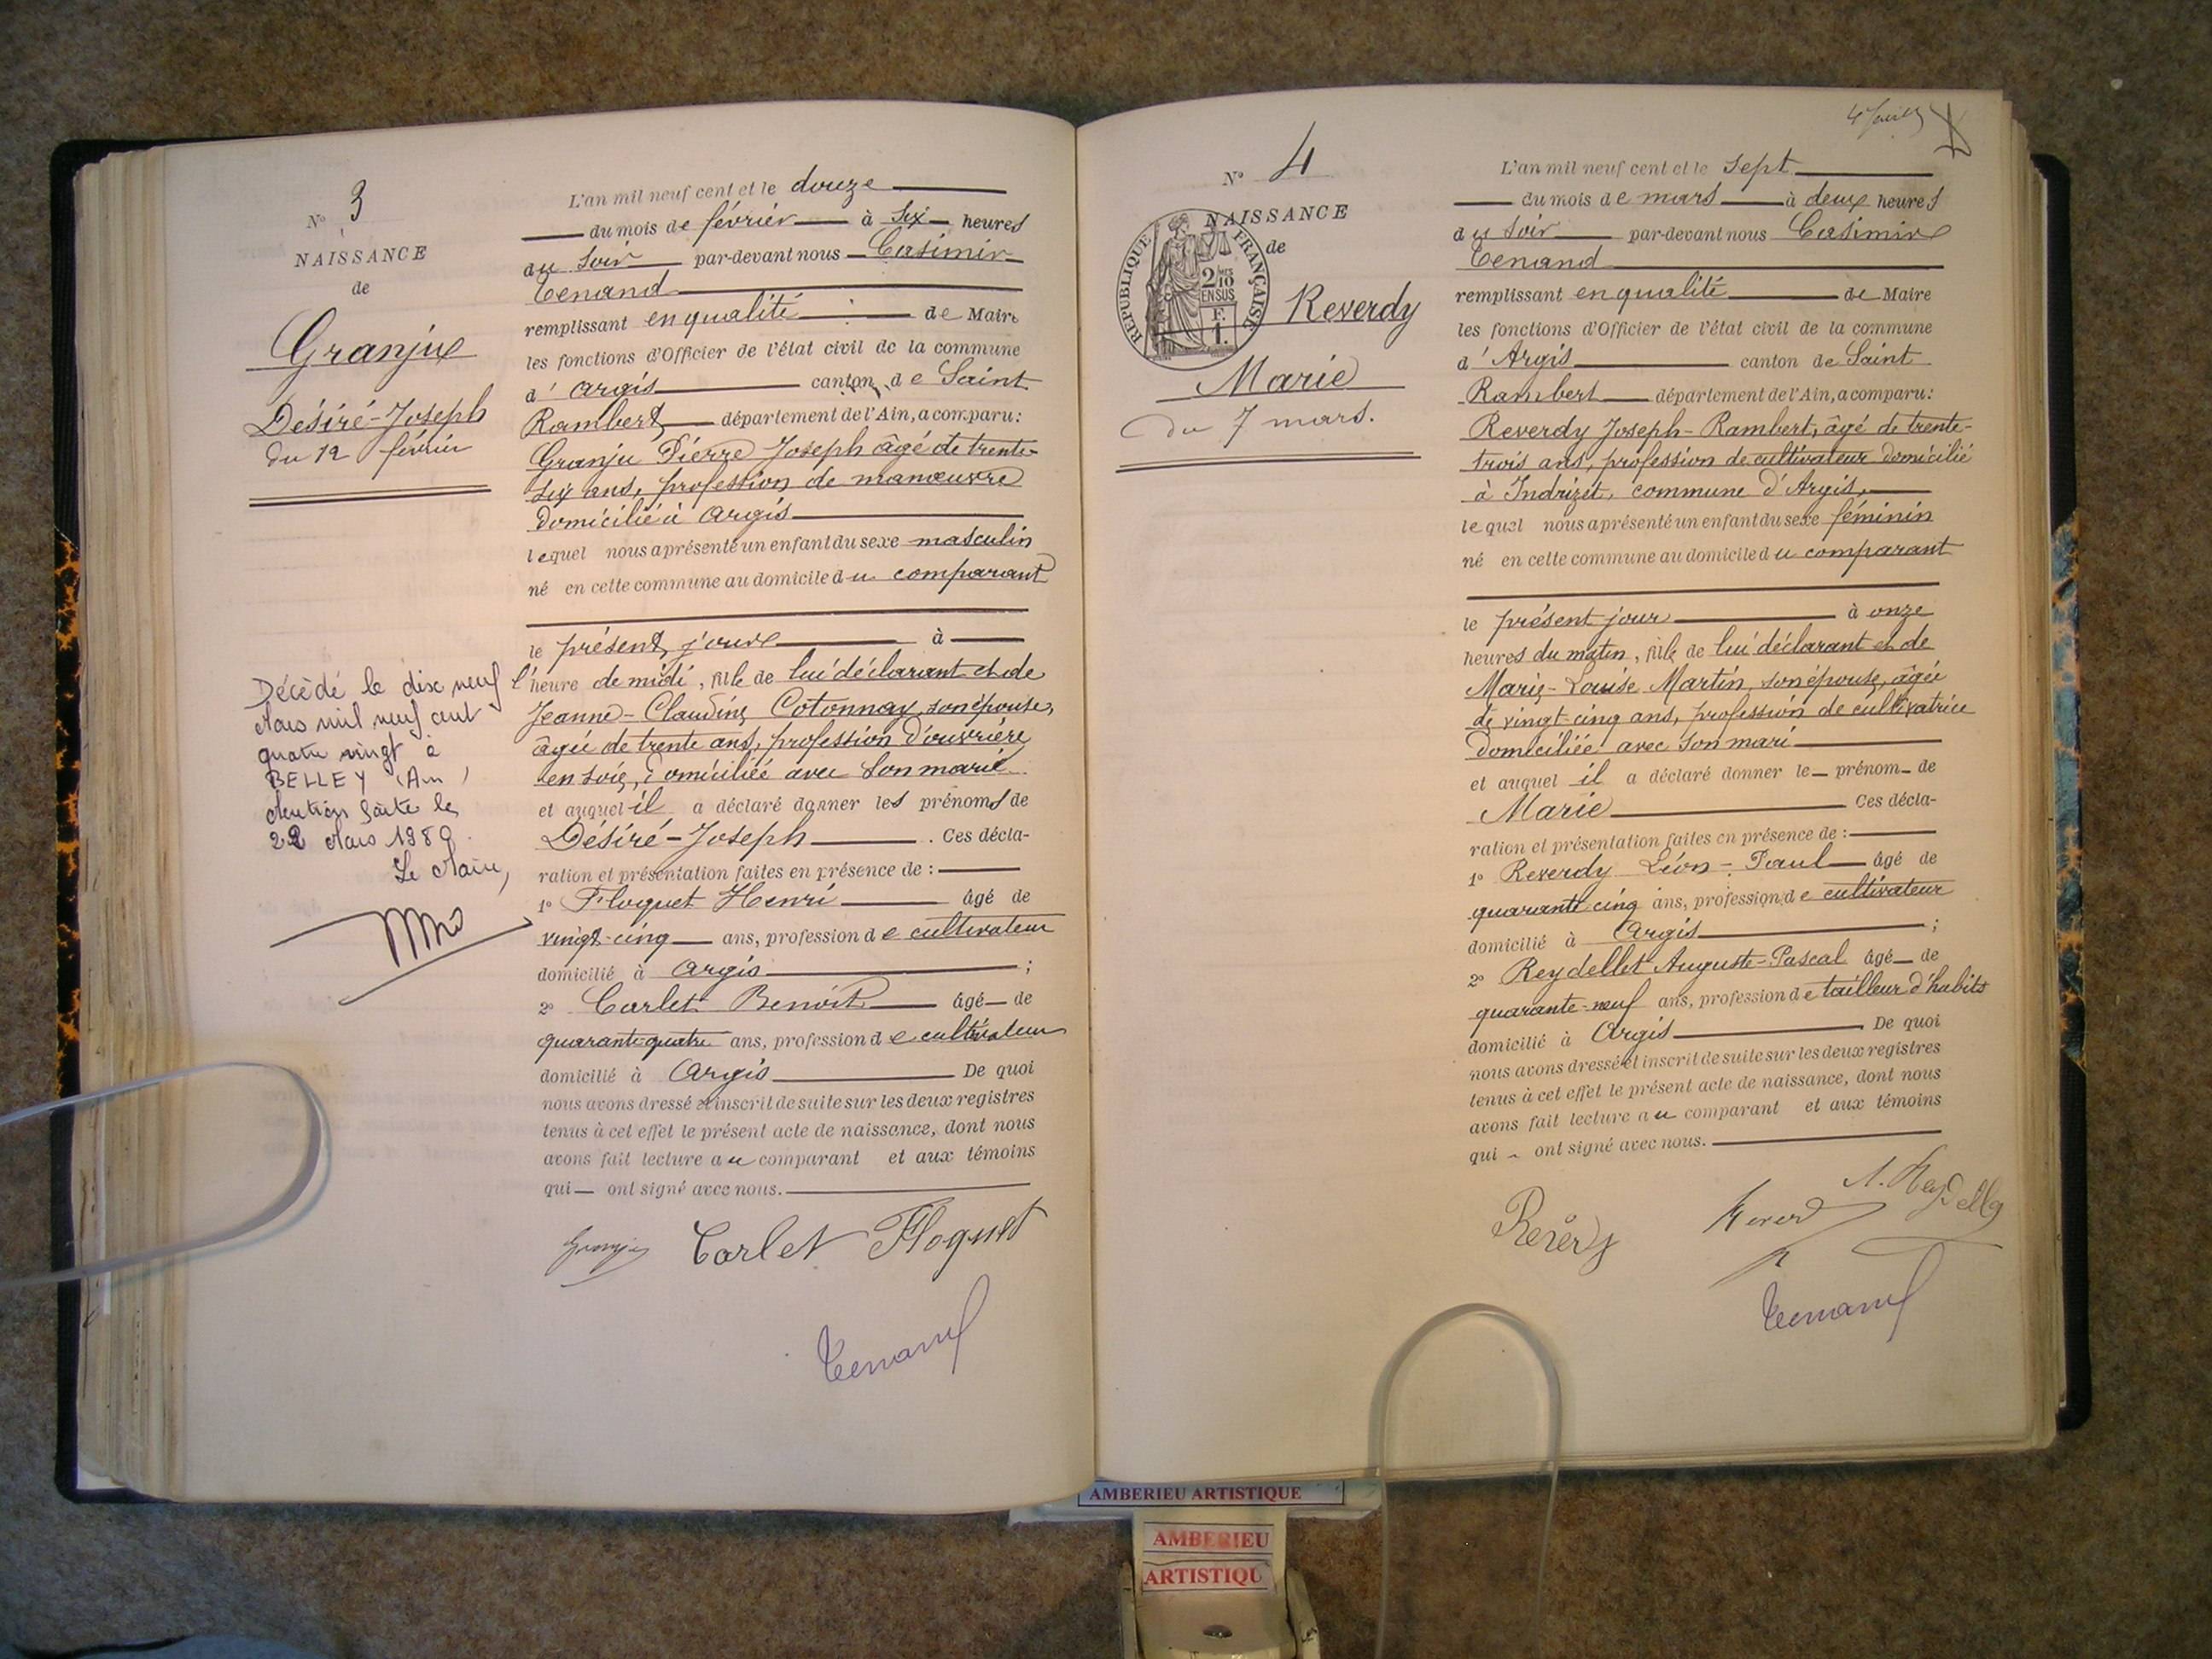 N° 3
NAISSANCE
de
Granju
Désiré-Joseph
du 12 février
Décédé le dix neuf
Mars mil neuf cent
quatre vingt à
BELLEY (Ain)
Mention faite le
22 Mars 1980.
Le Maire,
L'an mil neuf cent et le douze
du mois de février à six heures
du soir par-devant nous Casimir
Tenand
remplissant en qualité de Maire
les fonctions d'Officier de l'état civil de la commune
d'Argis canton de Saint
Rambert département de l'Ain, a comparu:
Granju Pierre Joseph âgé de trente-
six ans, profession de manœuvre
domicilié à Argis
lequel nous a présenté un enfant du sexe masculin
né en cette commune au domicile du comparant
le présent jour à
l'heure de midi, fils de lui déclarant et de
Jeanne-Claudine Cotonnay, son épouse,
âgée de trente ans, profession d'ouvrière
en soie, domiciliée avec son mari
et auquel il a déclaré donner les prénoms de
Désiré-Joseph. Ces décla-
ration et présentation faites en présence de :
1° Floquet Henri âgé de
vingt-cinq ans, profession de cultivateur
domicilié à Argis ;
2° Carlet Benoit âgé de
quarante-quatre ans, profession de cultivateur
domicilié à Argis De quoi
nous avons dressé et inscrit de suite sur les deux registres
tenus à cet effet le présent acte de naissance, dont nous
avons fait lecture au comparant et aux témoins
qui ont signé avec nous.
Granju Carlet Floquet
Tenand
N° 4
NAISSANCE
de
REPUBLIQUE FRANÇAISE
2/10
EN SUS
F.
1.
Reverdy
Marie
du 7 mars.
L'an mil neuf cent et le sept
du mois de mars à deux heures
du soir par-devant nous Casimir
Tenand
remplissant en qualité de Maire
les fonctions d'Officier de l'état civil de la commune
d'Argis canton de Saint
Rambert département de l'Ain, a comparu:
Reverdy Joseph-Rambert, âgé de trente-
trois ans, profession de cultivateur domicilié
à Indrizet, commune d'Argis,
lequel nous a présenté un enfant du sexe féminin
né en cette commune au domicile du comparant
le présent jour à onze
heures du matin, fille de lui déclarant et de
Marie-Louise Martin, son épouse, âgée
de vingt-cinq ans, profession de cultivatrice
domiciliée avec son mari
et auquel il a déclaré donner le prénom de
Marie Ces décla-
ration et présentation faites en présence de :
1° Reverdy Léon-Paul âgé de
quarante cinq ans, profession de cultivateur
domicilié à Argis ;
2° Reydellet Auguste-Pascal âgé de
quarante-neuf ans, profession de tailleur d'habits
domicilié à Argis De quoi
nous avons dressé et inscrit de suite sur les deux registres
tenus à cet effet le présent acte de naissance, dont nous
avons fait lecture au comparant et aux témoins
qui ont signé avec nous.
A. Reydellet
Reverdy
Tenand
AMBERIEU ARTISTIQUE
AMBERIEU
ARTISTIQU